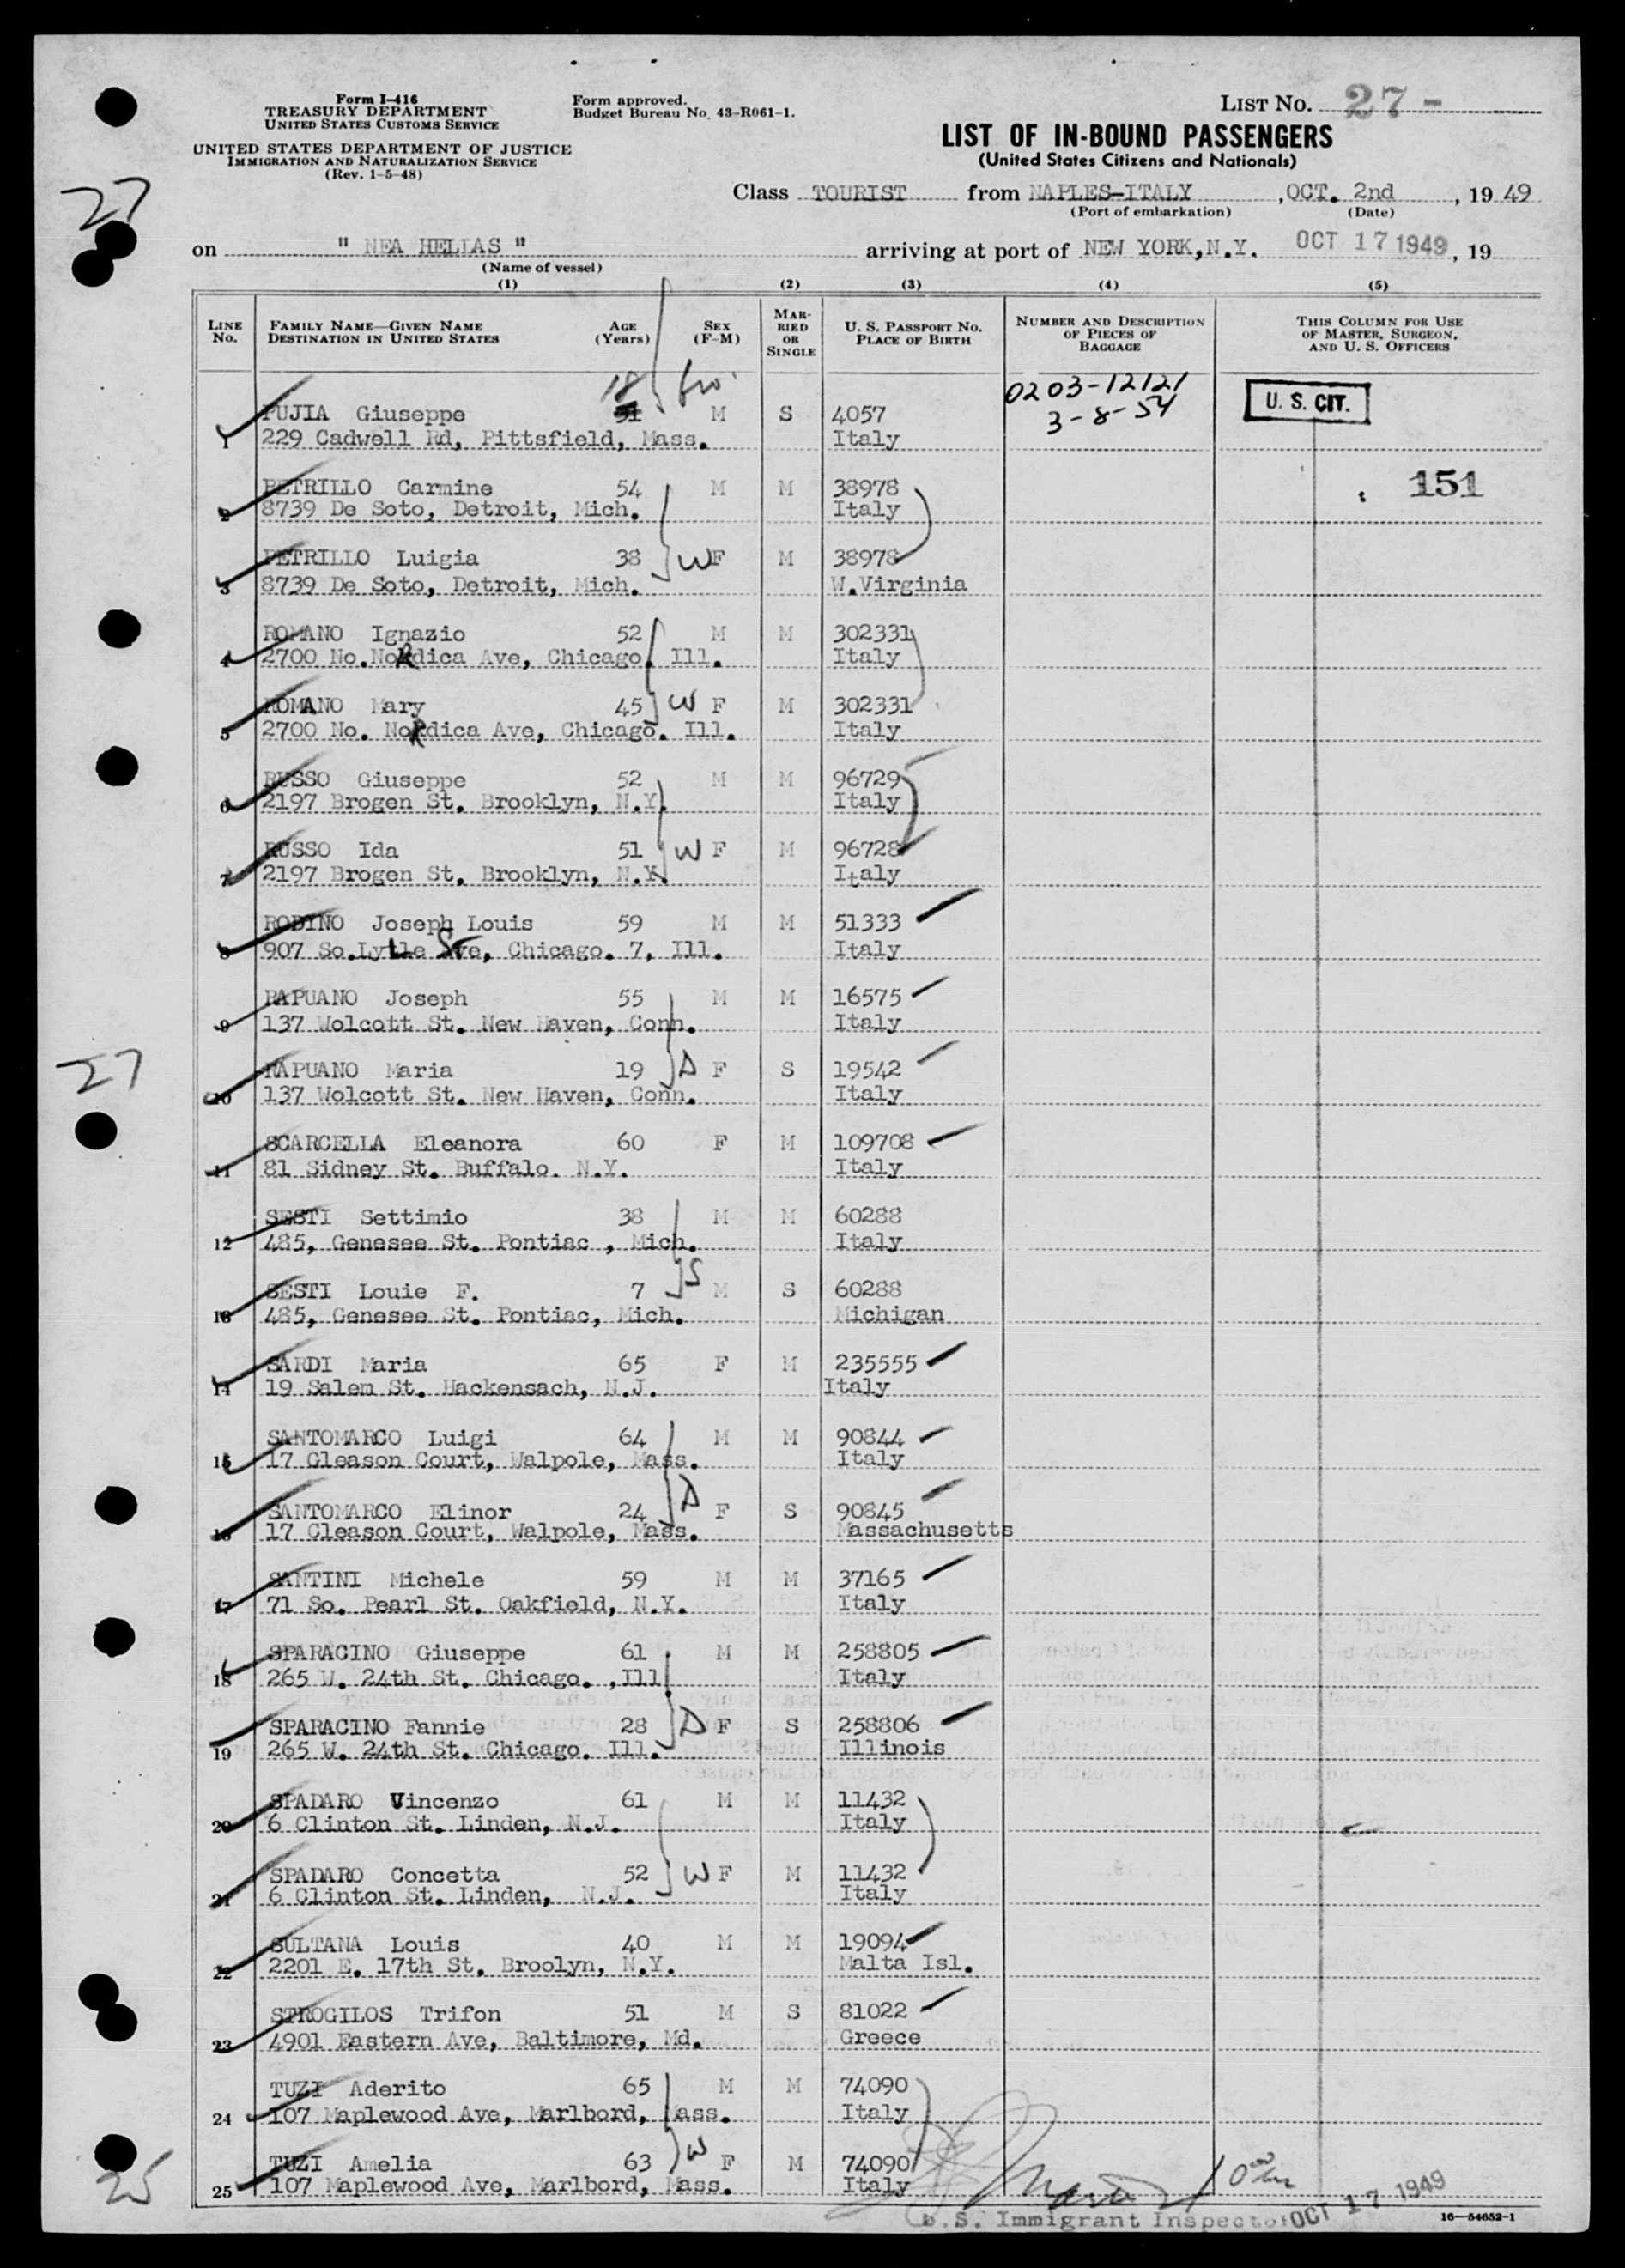 Form I-416
TREASURY DEPARTMENT
UNITED STATES CUSTOMS SERVICE
UNITED STATES DEPARTMENT OF JUSTICE
IMMIGRATION AND NATURALIZATION SERVICE
(Rev. 1-5-48)
Form approved.
Budget Bureau No. 43-R061-1.
LIST NO. 27-
LIST OF IN-BOUND PASSENGERS
(United States Citizens and Nationals)
27
Class TOURIST from NAPLES-ITALY, OCT. 2nd, 1949
(Port of embarkation) (Date)
on " NEA HELLAS " arriving at port of NEW YORK, N.Y. OCT 17 1949, 19
(Name of vessel)
(1) (2) (3) (4) (5)
LINE NO. FAMILY NAME—GIVEN NAME AGE (Years) SEX (F-M) MARRIED OR SINGLE U. S. PASSPORT NO. NUMBER AND DESCRIPTION OF PIECES OF BAGGAGE THIS COLUMN FOR USE OF MASTER, SURGEON, AND U. S. OFFICERS
DESTINATION IN UNITED STATES PLACE OF BIRTH
18 0203-12121
PUJIA Giuseppe M S 4057 3-8-54 U. S. CIT.
1 229 Cadwell Rd, Pittsfield, Mass. Italy
PETRILLO Carmine 54 M M 38978 151
2 8739 De Soto, Detroit, Mich. Italy
PETRILLO Luigia 38 W F M 38978
3 8739 De Soto, Detroit, Mich. W.Virginia
ROMANO Ignazio 52 M M 302331
4 2700 No.NoRdica Ave, Chicago. Ill. Italy
ROMANO Mary 45 W F M 302331
5 2700 No. NoRdica Ave, Chicago. Ill. Italy
RUSSO Giuseppe 52 M M 96729
6 2197 Brogen St. Brooklyn, N.Y. Italy
RUSSO Ida 51 W F M 96728
7 2197 Brogen St. Brooklyn, N.Y. Italy
RODINO Joseph Louis 59 M M 51333
8 907 So.Lytle Chicago. 7, Ill. Italy
PAPUANO Joseph 55 M M 16575
9 137 Wolcott St. New Haven, Conn. Italy
RAPUANO Maria 19 D F S 19542
27
10 137 Wolcott St. New Haven, Conn. Italy
SCARCELLA Eleanora 60 F M 109708
11 81 Sidney St. Buffalo. N.Y. Italy
SESTI Settimio 38 M M 60288
12 485, Genesee St. Pontiac , Mich. Italy
SESTI Louie F. 7 S M S 60288
13 485, Genesee St. Pontiac, Mich. Michigan
SARDI Maria 65 F M 235555
14 19 Salem St. Hackensach, N.J. Italy
SANTOMARCO Luigi 64 M M 90844
15 17 Gleason Court, Walpole, Mass. Italy
SANTOMARCO Elinor 24 D F S 90845
16 17 Cleason Court, Walpole, Mass. Massachusetts
SANTINI Michele 59 M M 37165
17 71 So. Pearl St. Oakfield, N.Y. Italy
SPARACINO Giuseppe 61 M M 258805
18 265 W. 24th St. Chicago. ,Ill. Italy
SPARACINO Fannie 28 D F S 258806
19 265 W. 24th St. Chicago. Ill. Illinois
SPADARO Vincenzo 61 M M 11432
20 6 Clinton St. Linden, N.J. Italy
SPADARO Concetta 52 W F M 11432
21 6 Clinton St. Linden, N.J. Italy
SULTANA Louis 40 M M 19094
22 2201 E. 17th St. Broolyn, N.Y. Malta Isl.
STROGILOS Trifon 51 M S 81022
23 4901 Eastern Ave, Baltimore, Md. Greece
TUZI Aderito 65 M M 74090
24 107 Maplewood Ave, Marlbord, Mass. Italy
TUZI Amelia 63 W F M 74090
25 107 Maplewood Ave, Marlbord, Mass. Italy
25
U.S. Immigrant Inspector OCT 17 1949
16—54652-1